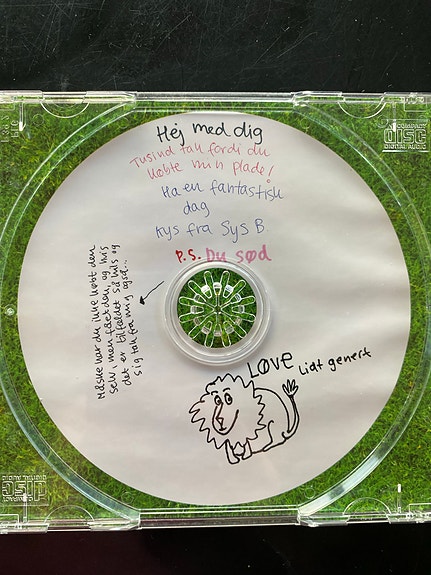 Hej med dig
Tusind tak fordi du
købte min plade!
Ha en fantastisk
dag
Kys fra Sys B
P.S. Du sød
Måske har du ikke købt den
selv, men fået den, og hvis
det er tilfældet så hils og
sig tak fra mig også...
LØVE
Lidt genert
COMPACT
disc
DIGITAL AUDIO